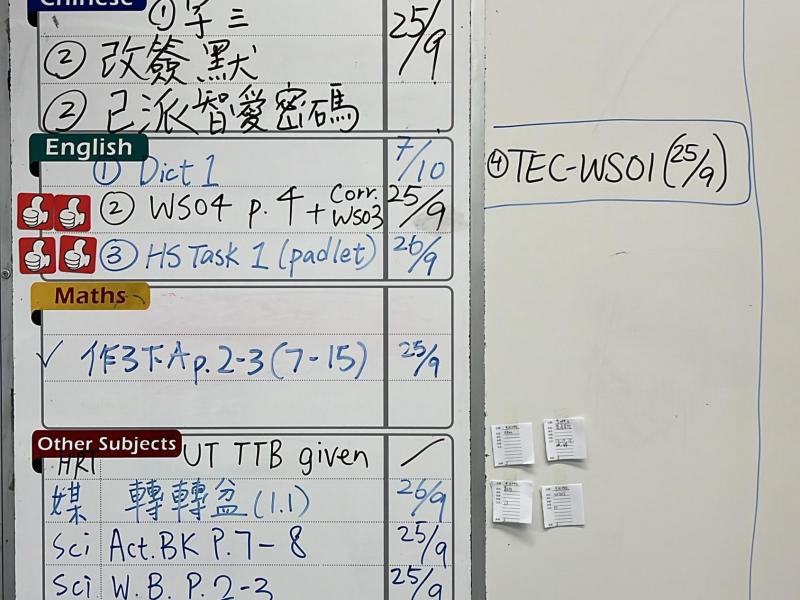 Chinese
① 字三 25/9
② 改簽默
② 已派智愛密碼
English
① Dict 1 7/10
② WS04 p.4 + Corr. WS03 25/9
③ HS Task 1 (padlet) 26/9
④ TEC-WS01 (25/9)
Maths
✓ 作3下A p.2-3 (7-15) 25/9
Other Subjects
HRT UT TTB given /
媒 轉轉盆 (1.1) 26/9
Sci Act.BK P.7-8 25/9
Sci W.B. P.2-3 25/9